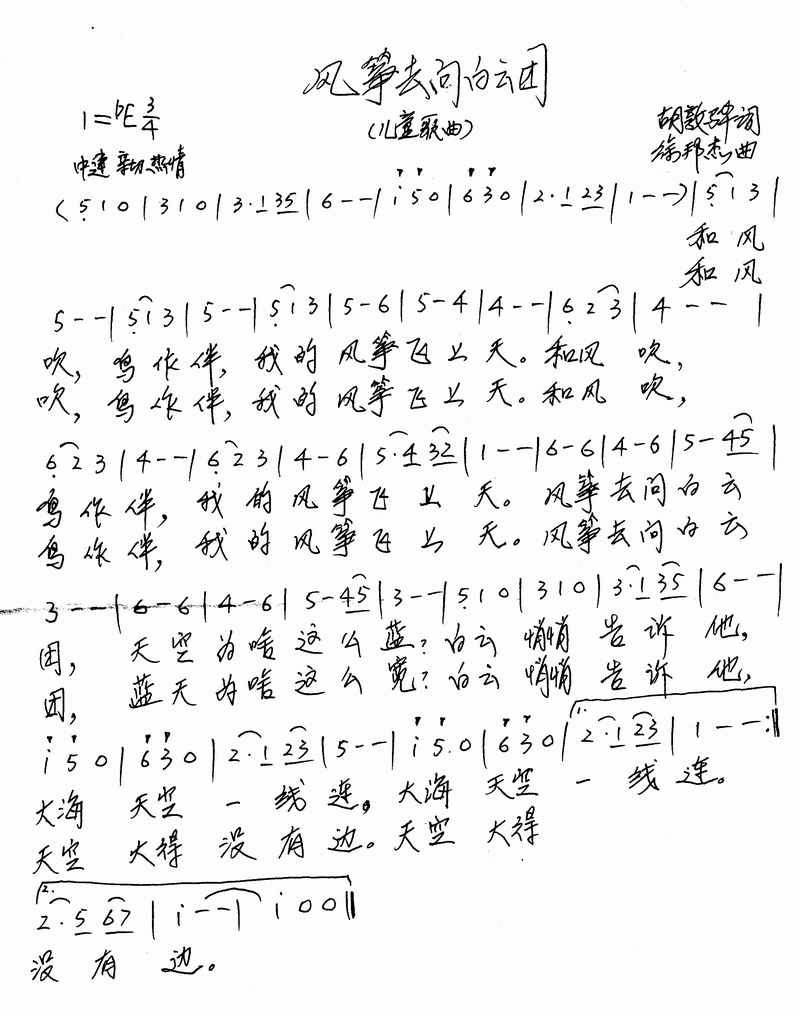 风筝去问白云团
(儿童歌曲)
1=♭E 3/4
胡敦骅词
中速 亲切 热情
徐邦杰曲
(5 1 0 | 3 1 0 | 3·1 35 | 6 - - | i 5 0 | 6 3 0 | 2·1 23 | 1 - -) | 5 1 3 |
和 风
和 风
5 - - | 5 1 3 | 5 - - | 5 1 3 | 5 - 6 | 5 - 4 | 4 - - | 6 2 3 | 4 - - |
吹, 鸟 作 伴, 我 的 风 筝 飞 上 天。 和风 吹,
吹, 鸟 作 伴, 我 的 风 筝 飞 上 天。 和风 吹,
6 2 3 | 4 - - | 6 2 3 | 4 - 6 | 5·4 32 | 1 - - | 6 - 6 | 4 - 6 | 5 - 45 |
鸟 作 伴, 我 的 风 筝 飞 上 天。 风 筝 去 问 白 云
鸟 作 伴, 我 的 风 筝 飞 上 天。 风 筝 去 问 白 云
3 - - | 6 - 6 | 4 - 6 | 5 - 45 | 3 - - | 5 1 0 | 3 1 0 | 3·1 35 | 6 - - |
团, 天 空 为 啥 这 么 蓝? 白云 悄悄 告 诉 他,
团, 蓝 天 为 啥 这 么 宽? 白云 悄悄 告 诉 他,
i 5 0 | 6 3 0 | 2·1 23 | 5 - - | i 5. 0 | 6 3 0 | 1. 2·1 23 | 1 - - :‖
大海 天空 一 线 连。 大海 天空 一 线 连。
天空 大得 没 有 边。 天空 大得
2. 2·5 67 | i - - | i 0 0 ‖
没 有 边。